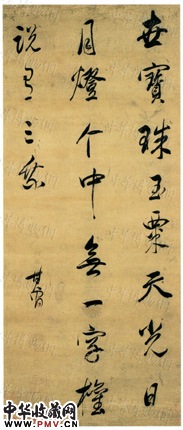 世寶珠玉粟天光日
月燈个中無一字權
說有三乘
其昌
中华收藏网
WWW.PMV.CN